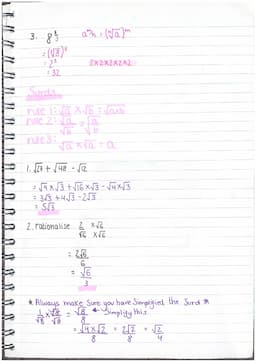 3. 8^(5/3) a^(m/n) = (ⁿ√a)^m
= (∛8)^5
= 2^5 2×2×2×2×2
= 32
Surds
rule 1: √a × √b = √ab
rule 2: √a/√b = √(a/b)
rule 3: √a × √a = a
1. √27 + √48 - √12
= √9 × √3 + √16 × √3 - √4 × √3
= 3√3 + 4√3 - 2√3
= 5√3
2. rationalise 2/√6 ×√6/×√6
= 2√6/6
= √6/3
* Always make sure you have simplified the surd *
1/√8 × √8/√8 = √8/8 simplify this
= √4 × √2/8 = 2√2/8 = √2/4